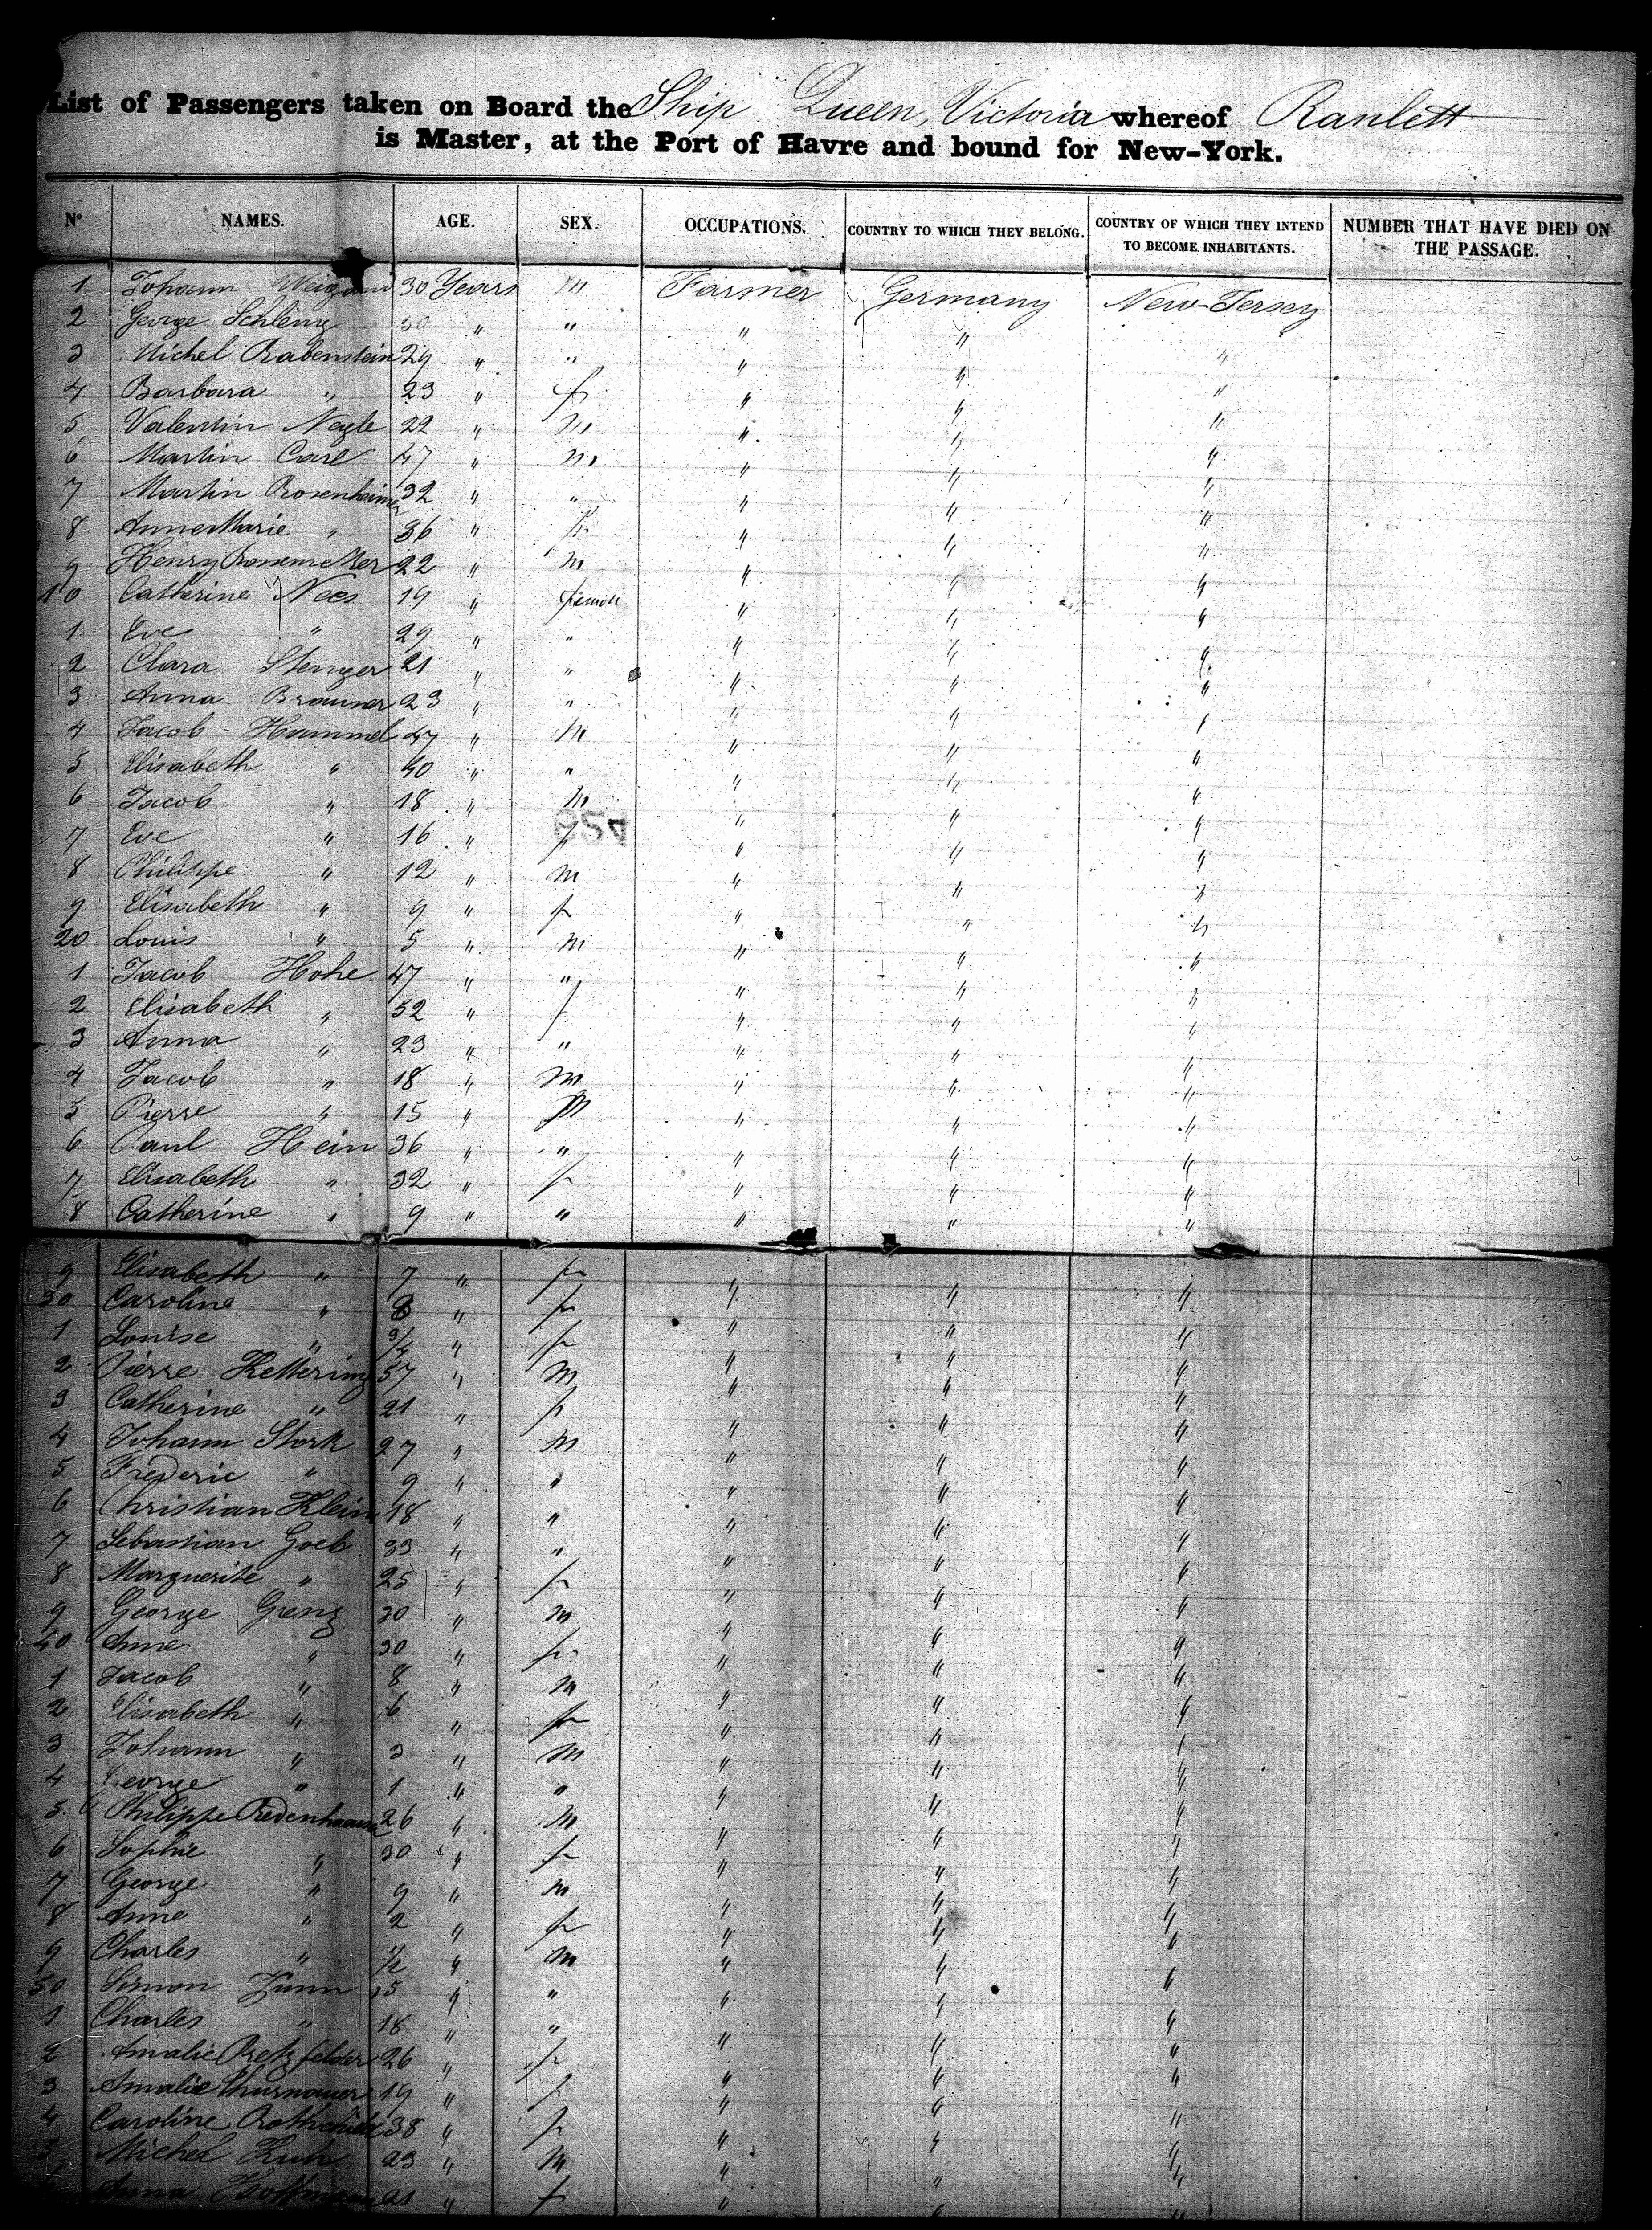 List of Passengers taken on Board the Ship Queen Victoria whereof Ranlett
is Master, at the Port of Havre and bound for New-York.
N° NAMES. AGE. SEX. OCCUPATIONS. COUNTRY TO WHICH THEY BELONG. COUNTRY OF WHICH THEY INTEND TO BECOME INHABITANTS. NUMBER THAT HAVE DIED ON THE PASSAGE.
1 Johann 30 Years m Farmer Germany New-Jersey
2 George " " " " "
3 Michel Rabenstein 29 " " " " "
4 Barbara " 23 " f " " "
5 Valentin Nagle 22 " m " " "
6 Martin Carl 47 " m " " "
7 Martin Rosenheimer 32 " " " " "
8 Anne Marie " 36 " f " " "
9 Henry 22 " m " " "
10 Catherine Nees 19 " female " " "
1 Eve " 29 " " " " "
2 Clara Stenger 21 " " " " "
3 Anna Brauner 23 " " " " "
4 Jacob Hummel 47 " m " " "
5 Elisabeth " 40 " " " " "
6 Jacob " 18 " m " " "
7 Eve " 16 " f " " "
8 Philippe " 12 " m " " "
9 Elisabeth " 9 " f " " "
20 Louis " 5 " m " " "
1 Jacob Hohe 47 " " " " "
2 Elisabeth " 52 " f " " "
3 Anna " 23 " " " " "
4 Jacob " 18 " m " " "
5 Pierre " 15 " m " " "
6 Paul Hein 36 " " " " "
7 Elisabeth " 32 " f " " "
8 Catherine " 9 " " " " "
9 Elisabeth " 7 " f " " "
30 Caroline " " f " " "
1 Louise " 3/4 " f " " "
2 Pierre Kettering 57 " m " " "
3 Catherine " 21 " f " " "
4 Johann Stork 27 " m " " "
5 Frederic " 9 " " " " "
6 Christian Klein 18 " " " " "
7 Sebastian Goeb 33 " " " " "
8 Marguerite " 25 " f " " "
9 George Grenz 30 " m " " "
40 Anne " 30 " f " " "
1 Jacob " 8 " m " " "
2 Elisabeth " 6 " f " " "
3 Johann " 3 " m " " "
4 George " 1 " " " " "
5 Philippe 26 " m " " "
6 Sophie " 30 " f " " "
7 George " 9 " m " " "
8 Anne " 2 " f " " "
9 Charles " 1/2 " m " " "
50 Simon " " " " "
1 Charles " 18 " " " " "
2 Amalie Bretzfelder 26 " f " " "
3 Amalie 19 " f " " "
4 Caroline Rothschild 38 " f " " "
Michel Kuh 23 " m " " "
Anna Hoffmann 21 " f " " "